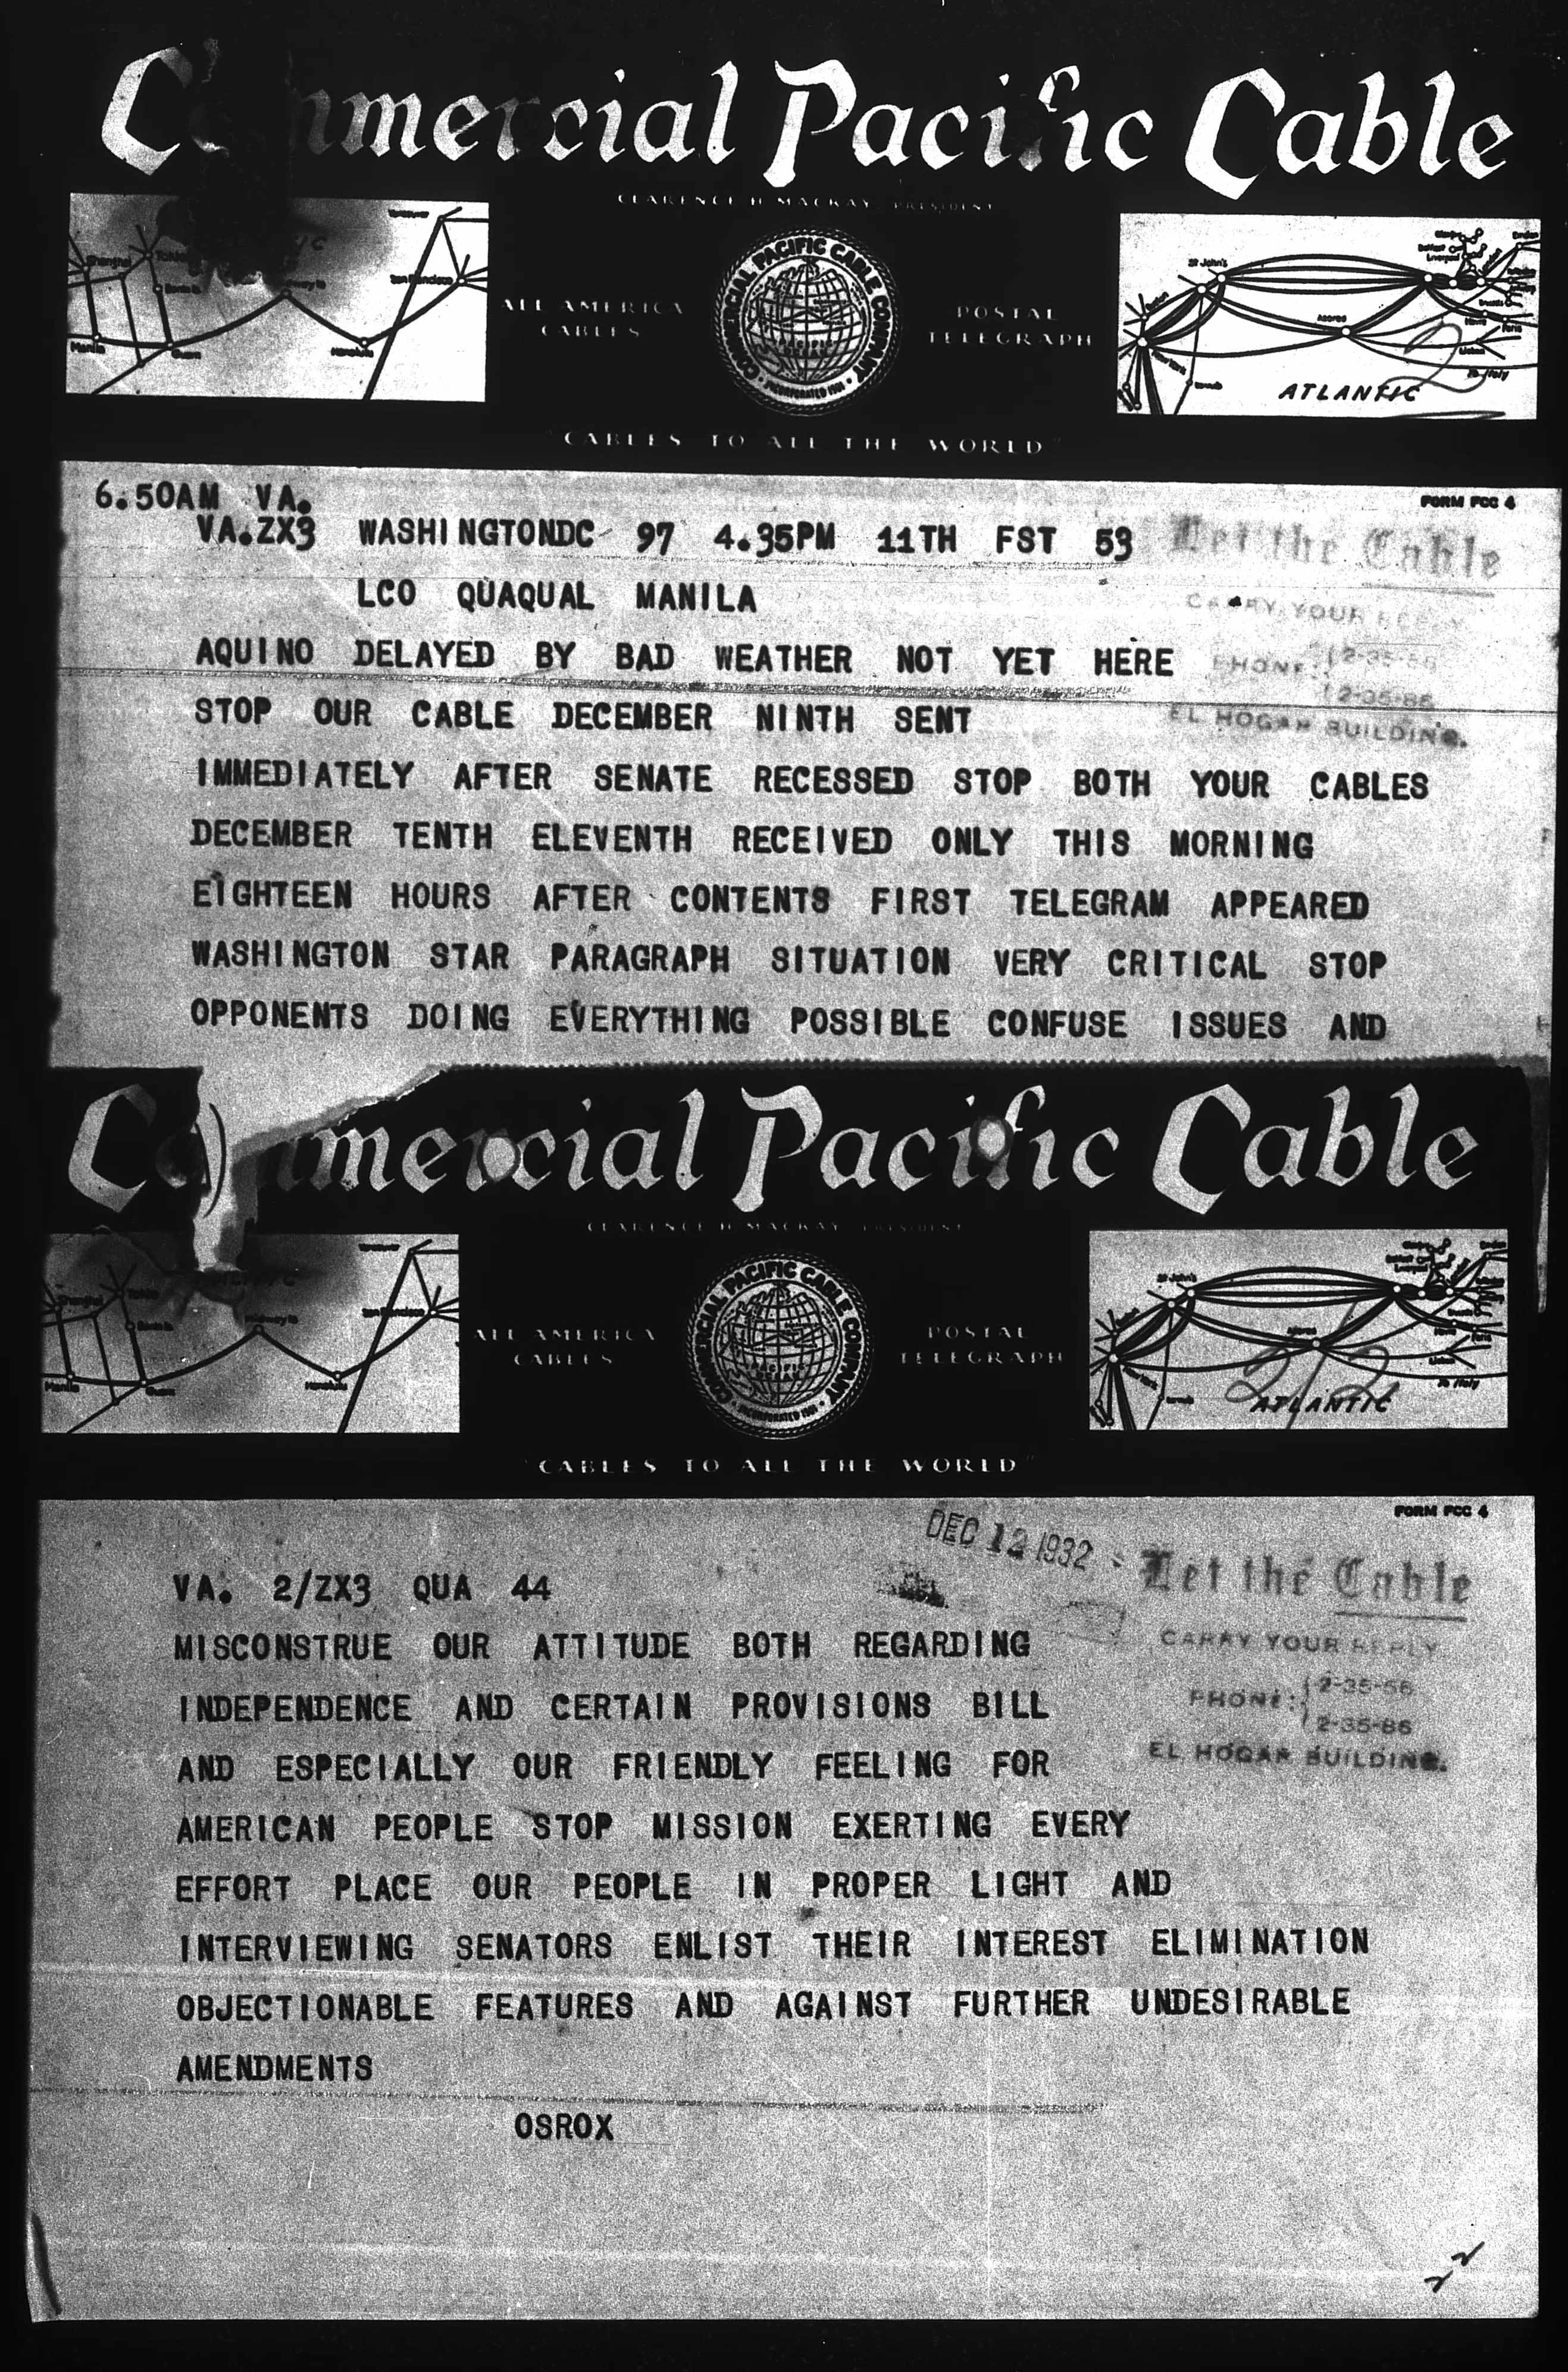 Commercial Pacific Cable
CLARENCE H. MACKAY, PRESIDENT
Shanghai
Manila
Guam
Honolulu
San Francisco
ALL AMERICA
CABLES
COMMERCIAL PACIFIC CABLE COMPANY
INCORPORATED 1901
POSTAL
TELEGRAPH
St John's
Azores
To Italy
ATLANTIC
"CABLES TO ALL THE WORLD"
FORM FCC 4
6.50AM VA.
VA.ZX3 WASHINGTONDC 97 4.35PM 11TH FST 53
Let the Cable
CARRY YOUR REPLY
PHONE: 2-35-56
2-35-86
EL HOGAR BUILDING.
LCO QUAQUAL MANILA
AQUINO DELAYED BY BAD WEATHER NOT YET HERE
STOP OUR CABLE DECEMBER NINTH SENT
IMMEDIATELY AFTER SENATE RECESSED STOP BOTH YOUR CABLES
DECEMBER TENTH ELEVENTH RECEIVED ONLY THIS MORNING
EIGHTEEN HOURS AFTER CONTENTS FIRST TELEGRAM APPEARED
WASHINGTON STAR PARAGRAPH SITUATION VERY CRITICAL STOP
OPPONENTS DOING EVERYTHING POSSIBLE CONFUSE ISSUES AND
Commercial Pacific Cable
CLARENCE H. MACKAY, PRESIDENT
Shanghai
Manila
Guam
Honolulu
San Francisco
ALL AMERICA
CABLES
COMMERCIAL PACIFIC CABLE COMPANY
PACIFIC
OCEAN
INCORPORATED 1901
POSTAL
TELEGRAPH
St John's
Azores
To Italy
ATLANTIC
"CABLES TO ALL THE WORLD"
FORM FCC 4
DEC 12 1932
Let the Cable
CARRY YOUR REPLY
PHONE: 2-35-56
2-35-86
EL HOGAR BUILDING.
VA. 2/ZX3 QUA 44
MISCONSTRUE OUR ATTITUDE BOTH REGARDING
INDEPENDENCE AND CERTAIN PROVISIONS BILL
AND ESPECIALLY OUR FRIENDLY FEELING FOR
AMERICAN PEOPLE STOP MISSION EXERTING EVERY
EFFORT PLACE OUR PEOPLE IN PROPER LIGHT AND
INTERVIEWING SENATORS ENLIST THEIR INTEREST ELIMINATION
OBJECTIONABLE FEATURES AND AGAINST FURTHER UNDESIRABLE
AMENDMENTS
OSROX